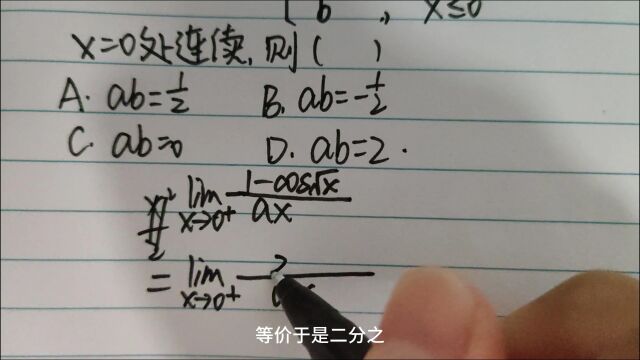 b , x≤0
x=0处连续,则( )
A. ab=1/2 B. ab=-1/2
C. ab=0 D. ab=2.
lim x→0+ 1-cos√x / ax
= lim x→0+
等价于是二分之